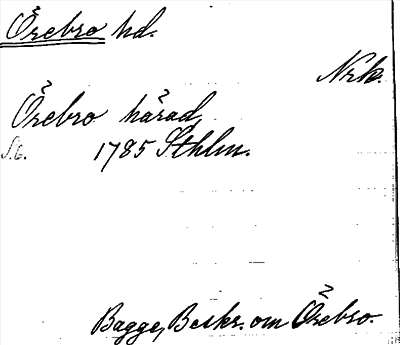 Örebro hd.
Nrk.
Örebro härad,
S. 6. 1785 Sthlm.
Bagge, Beskr. om Örebro.